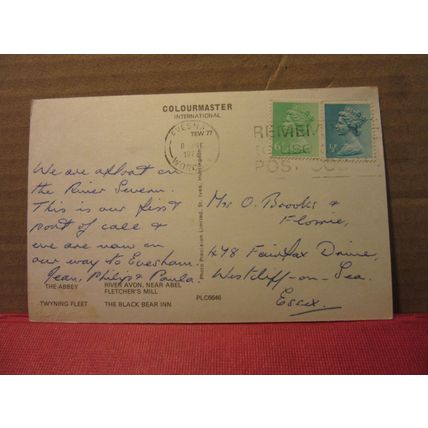 COLOURMASTER
INTERNATIONAL
TEW.77
EVESH
REMEM
POST
We are afloat on
the River Severn.
This is our first
port of call &
we are now on
our way to Evesham.
Jean, Philip & Paula
Mrs O. Brooks &
Flossie,
478 Fairfax Drive,
Westcliff-on-Sea.
Essex.
Photo Precision Limited, St. Ives, Huntingdon
THE ABBEY
RIVER AVON, NEAR ABEL
FLETCHER'S MILL
TWYNING FLEET
THE BLACK BEAR INN
PLC6646